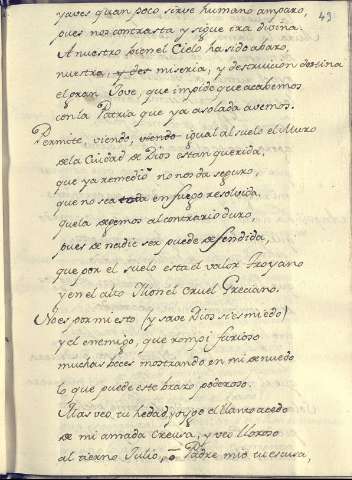 49
yaves quan poco sirve humano amparo,
pues nos contrasta y sigue ira divina.
A nuestro bien el Cielo ha sido abaro,
nuestra, y des miseria, y destruicion destina
el gran Jove, que impide que acabemos
con la Patria que ya asolada avemos.
Permite, viendo, viendo igual al suelo el Muro
de la Ciudad de Dios estan querida,
que ya remedio no nos da seguro,
que no sea toda en fuego resolvida,
que la dexemos al contrario duro,
pues de nadie ser puede defendida,
que por el suelo esta el valor Troyano
y en el alto Ilion el cruel Greciano.
No es por mi esto (y save Dios si es miedo)
y el enemigo, que rompi furioso
muchas beces mostrando en mi denuedo
lo que puede este brazo poderoso.
Mas veo tu hedad, y oygo el llanto acedo
de mi amada Creusa, y veo lloroso
al tierno Julio, o Padre mio tu escusa,